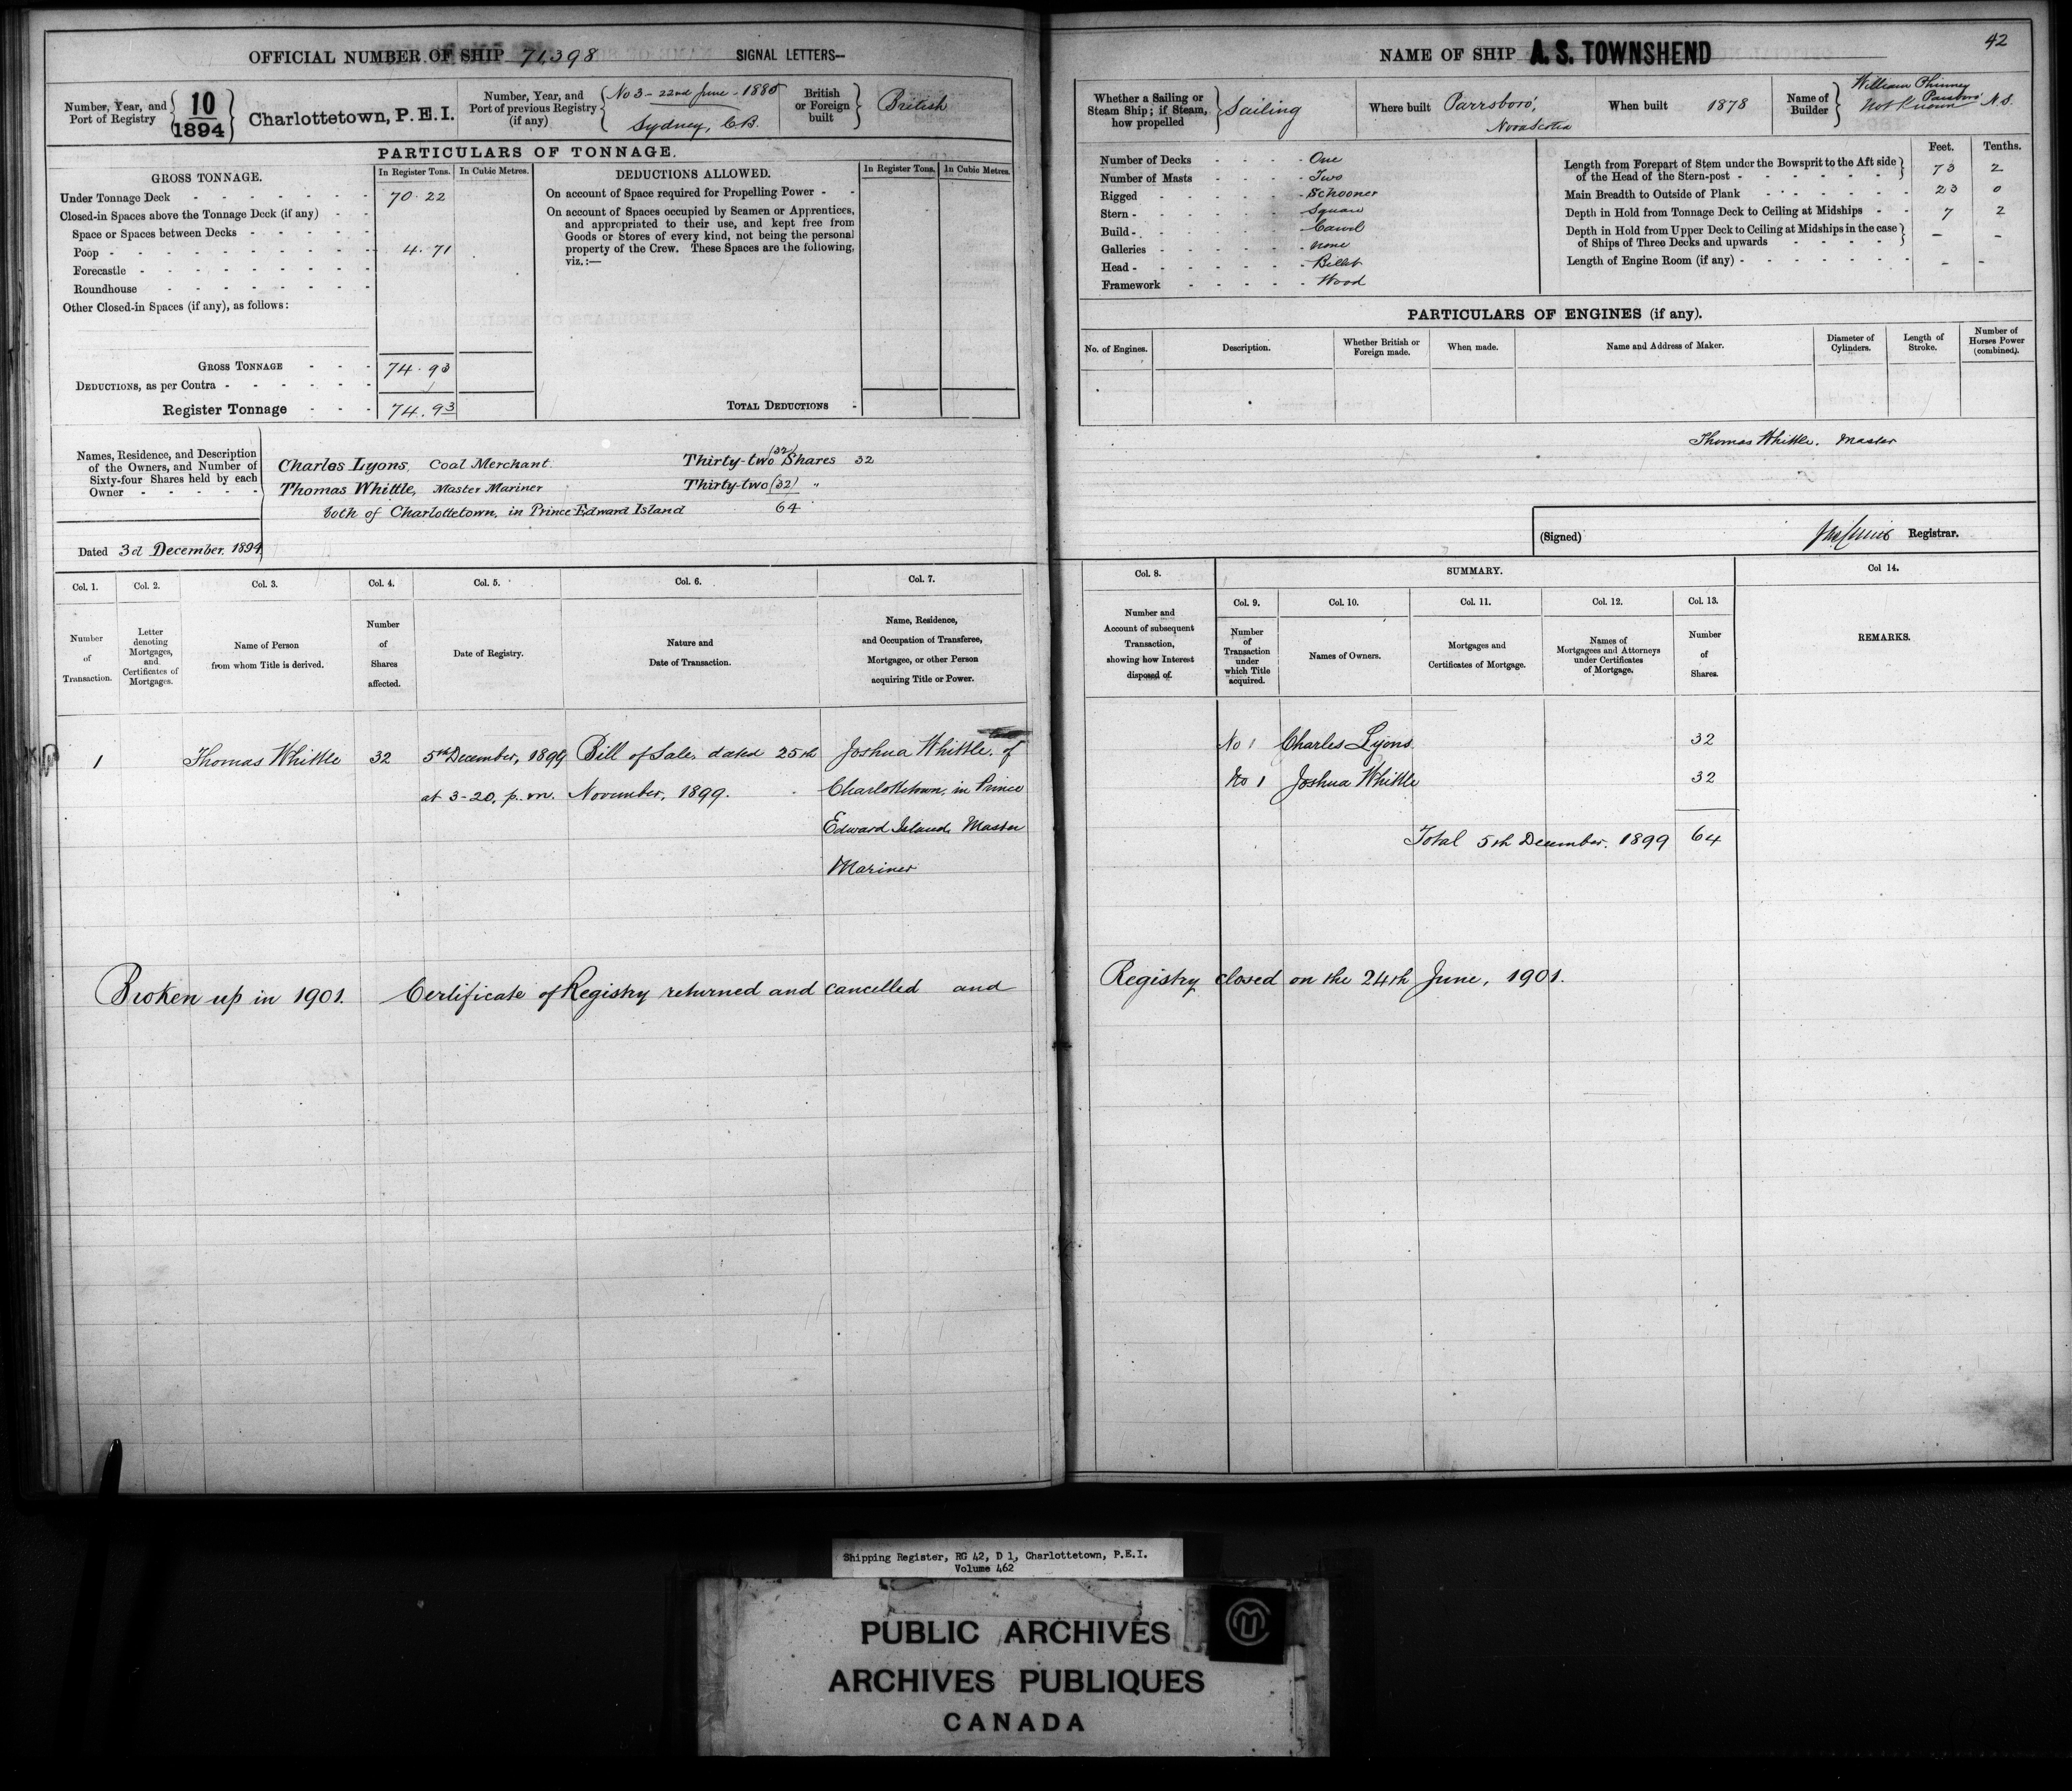 OFFICIAL NUMBER OF SHIP 71,398 SIGNAL LETTERS—
Number, Year, and Port of Registry 10/1894 Charlottetown, P.E.I.
Number, Year, and Port of previous Registry (if any) No 3 - 22nd June - 1885 Sydney, C.B.
British or Foreign built British
PARTICULARS OF TONNAGE.
GROSS TONNAGE. In Register Tons. In Cubic Metres.
Under Tonnage Deck 70.22
Closed-in Spaces above the Tonnage Deck (if any)
Space or Spaces between Decks
Poop 4.71
Forecastle
Roundhouse
Other Closed-in Spaces (if any), as follows:
GROSS TONNAGE 74.93
DEDUCTIONS, as per Contra
Register Tonnage 74.93
DEDUCTIONS ALLOWED. In Register Tons. In Cubic Metres.
On account of Space required for Propelling Power
On account of Spaces occupied by Seamen or Apprentices,
and appropriated to their use, and kept free from
Goods or Stores of every kind, not being the personal
property of the Crew. These Spaces are the following,
viz.:—
TOTAL DEDUCTIONS
Names, Residence, and Description
of the Owners, and Number of
Sixty-four Shares held by each
Owner
Charles Lyons, Coal Merchant. Thirty-two (32) Shares 32
Thomas Whittle, Master Mariner Thirty-two (32) "
both of Charlottetown, in Prince Edward Island 64
Dated 3d December. 1894
Col. 1. Col. 2. Col. 3. Col. 4. Col. 5. Col. 6. Col. 7.
Number of Transaction.
Letter denoting Mortgages, and Certificates of Mortgages.
Name of Person from whom Title is derived.
Number of Shares affected.
Date of Registry.
Nature and Date of Transaction.
Name, Residence, and Occupation of Transferee, Mortgagee, or other Person acquiring Title or Power.
1 Thomas Whittle 32 5th December, 1899 Bill of Sale, dated 25th Joshua Whittle, of
at 3-20, p.m. November, 1899. Charlottetown, in Prince
Edward Island, Master
Mariner
Broken up in 1901. Certificate of Registry returned and cancelled and
42
NAME OF SHIP A. S. TOWNSHEND
Whether a Sailing or Steam Ship; if Steam, how propelled Sailing
Where built Parrsboro', Nova Scotia
When built 1878
Name of Builder William
Not Known N.S.
Number of Decks One
Number of Masts Two
Rigged Schooner
Stern Square
Build Carvel
Galleries None
Head Billet
Framework Wood
Feet. Tenths.
Length from Forepart of Stem under the Bowsprit to the Aft side
of the Head of the Stern-post 73 2
Main Breadth to Outside of Plank 23 0
Depth in Hold from Tonnage Deck to Ceiling at Midships 7 2
Depth in Hold from Upper Deck to Ceiling at Midships in the case
of Ships of Three Decks and upwards – –
Length of Engine Room (if any) – –
PARTICULARS OF ENGINES (if any).
No. of Engines. Description. Whether British or Foreign made. When made. Name and Address of Maker. Diameter of Cylinders. Length of Stroke. Number of Horses Power (combined).
Thomas Whittle, Master
(Signed) Registrar.
Col. 8. SUMMARY. Col 14.
Col. 9. Col. 10. Col. 11. Col. 12. Col. 13.
Number and Account of subsequent Transaction, showing how Interest disposed of.
Number of Transaction under which Title acquired.
Names of Owners.
Mortgages and Certificates of Mortgage.
Names of Mortgagees and Attorneys under Certificates of Mortgage.
Number of Shares.
REMARKS.
No 1 Charles Lyons. 32
No 1 Joshua Whittle 32
Total 5th December. 1899 64
Registry closed on the 24th June, 1901.
Shipping Register, RG 42, D 1, Charlottetown, P.E.I.
Volume 462
PUBLIC ARCHIVES
ARCHIVES PUBLIQUES
CANADA